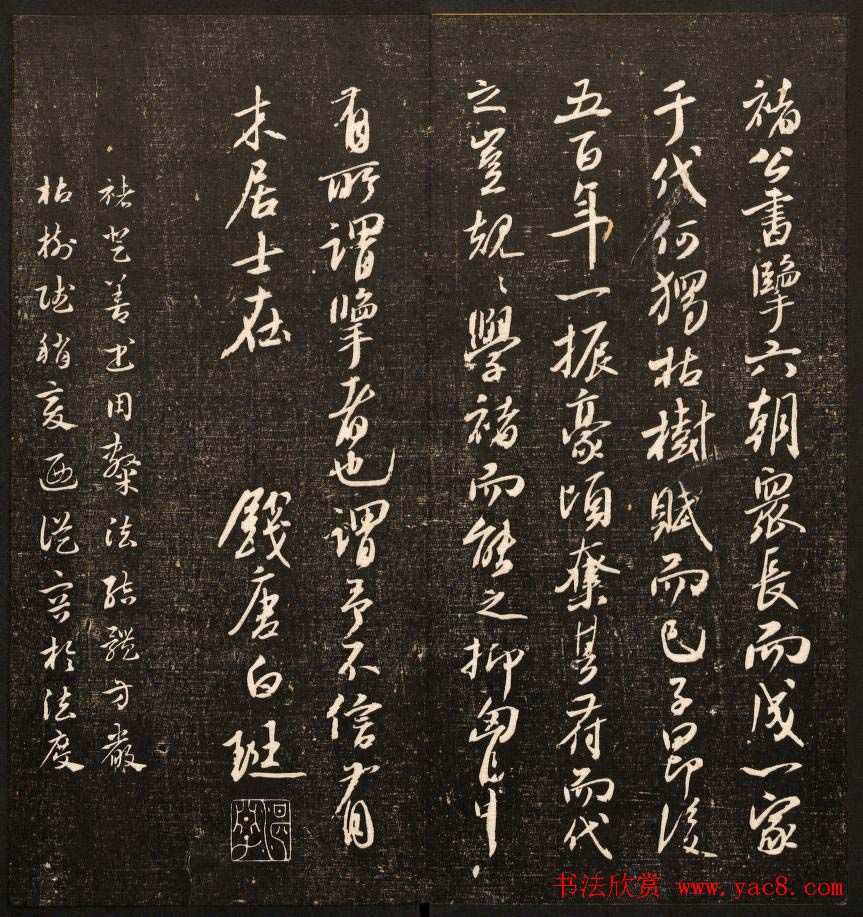 褚公書擥六朝眾長而成一家
于代何獨枯樹賦而已子昂後
五百年一振豪頃奪其府而代
之豈規〻學褚而能之抑胸中
有所謂擥者也謂予不信有
末居士在
錢唐白珽
褚登善書用隸法結體方嚴
枯樹賦稍變而從容於法度
书法欣赏 www.yac8.com